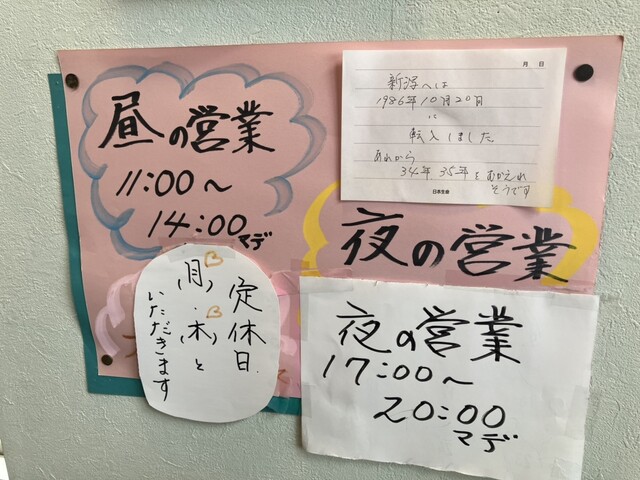 昼の営業
11:00～
14:00
マデ
月 日
新潟へは
1986年10月20日
に
転入しました
あれから
34年 35年をむかえれ
そうです
日本生命
夜の営業
定休日
(月)・(木)と
いただきます
夜の営業
17:00～
20:00
マデ